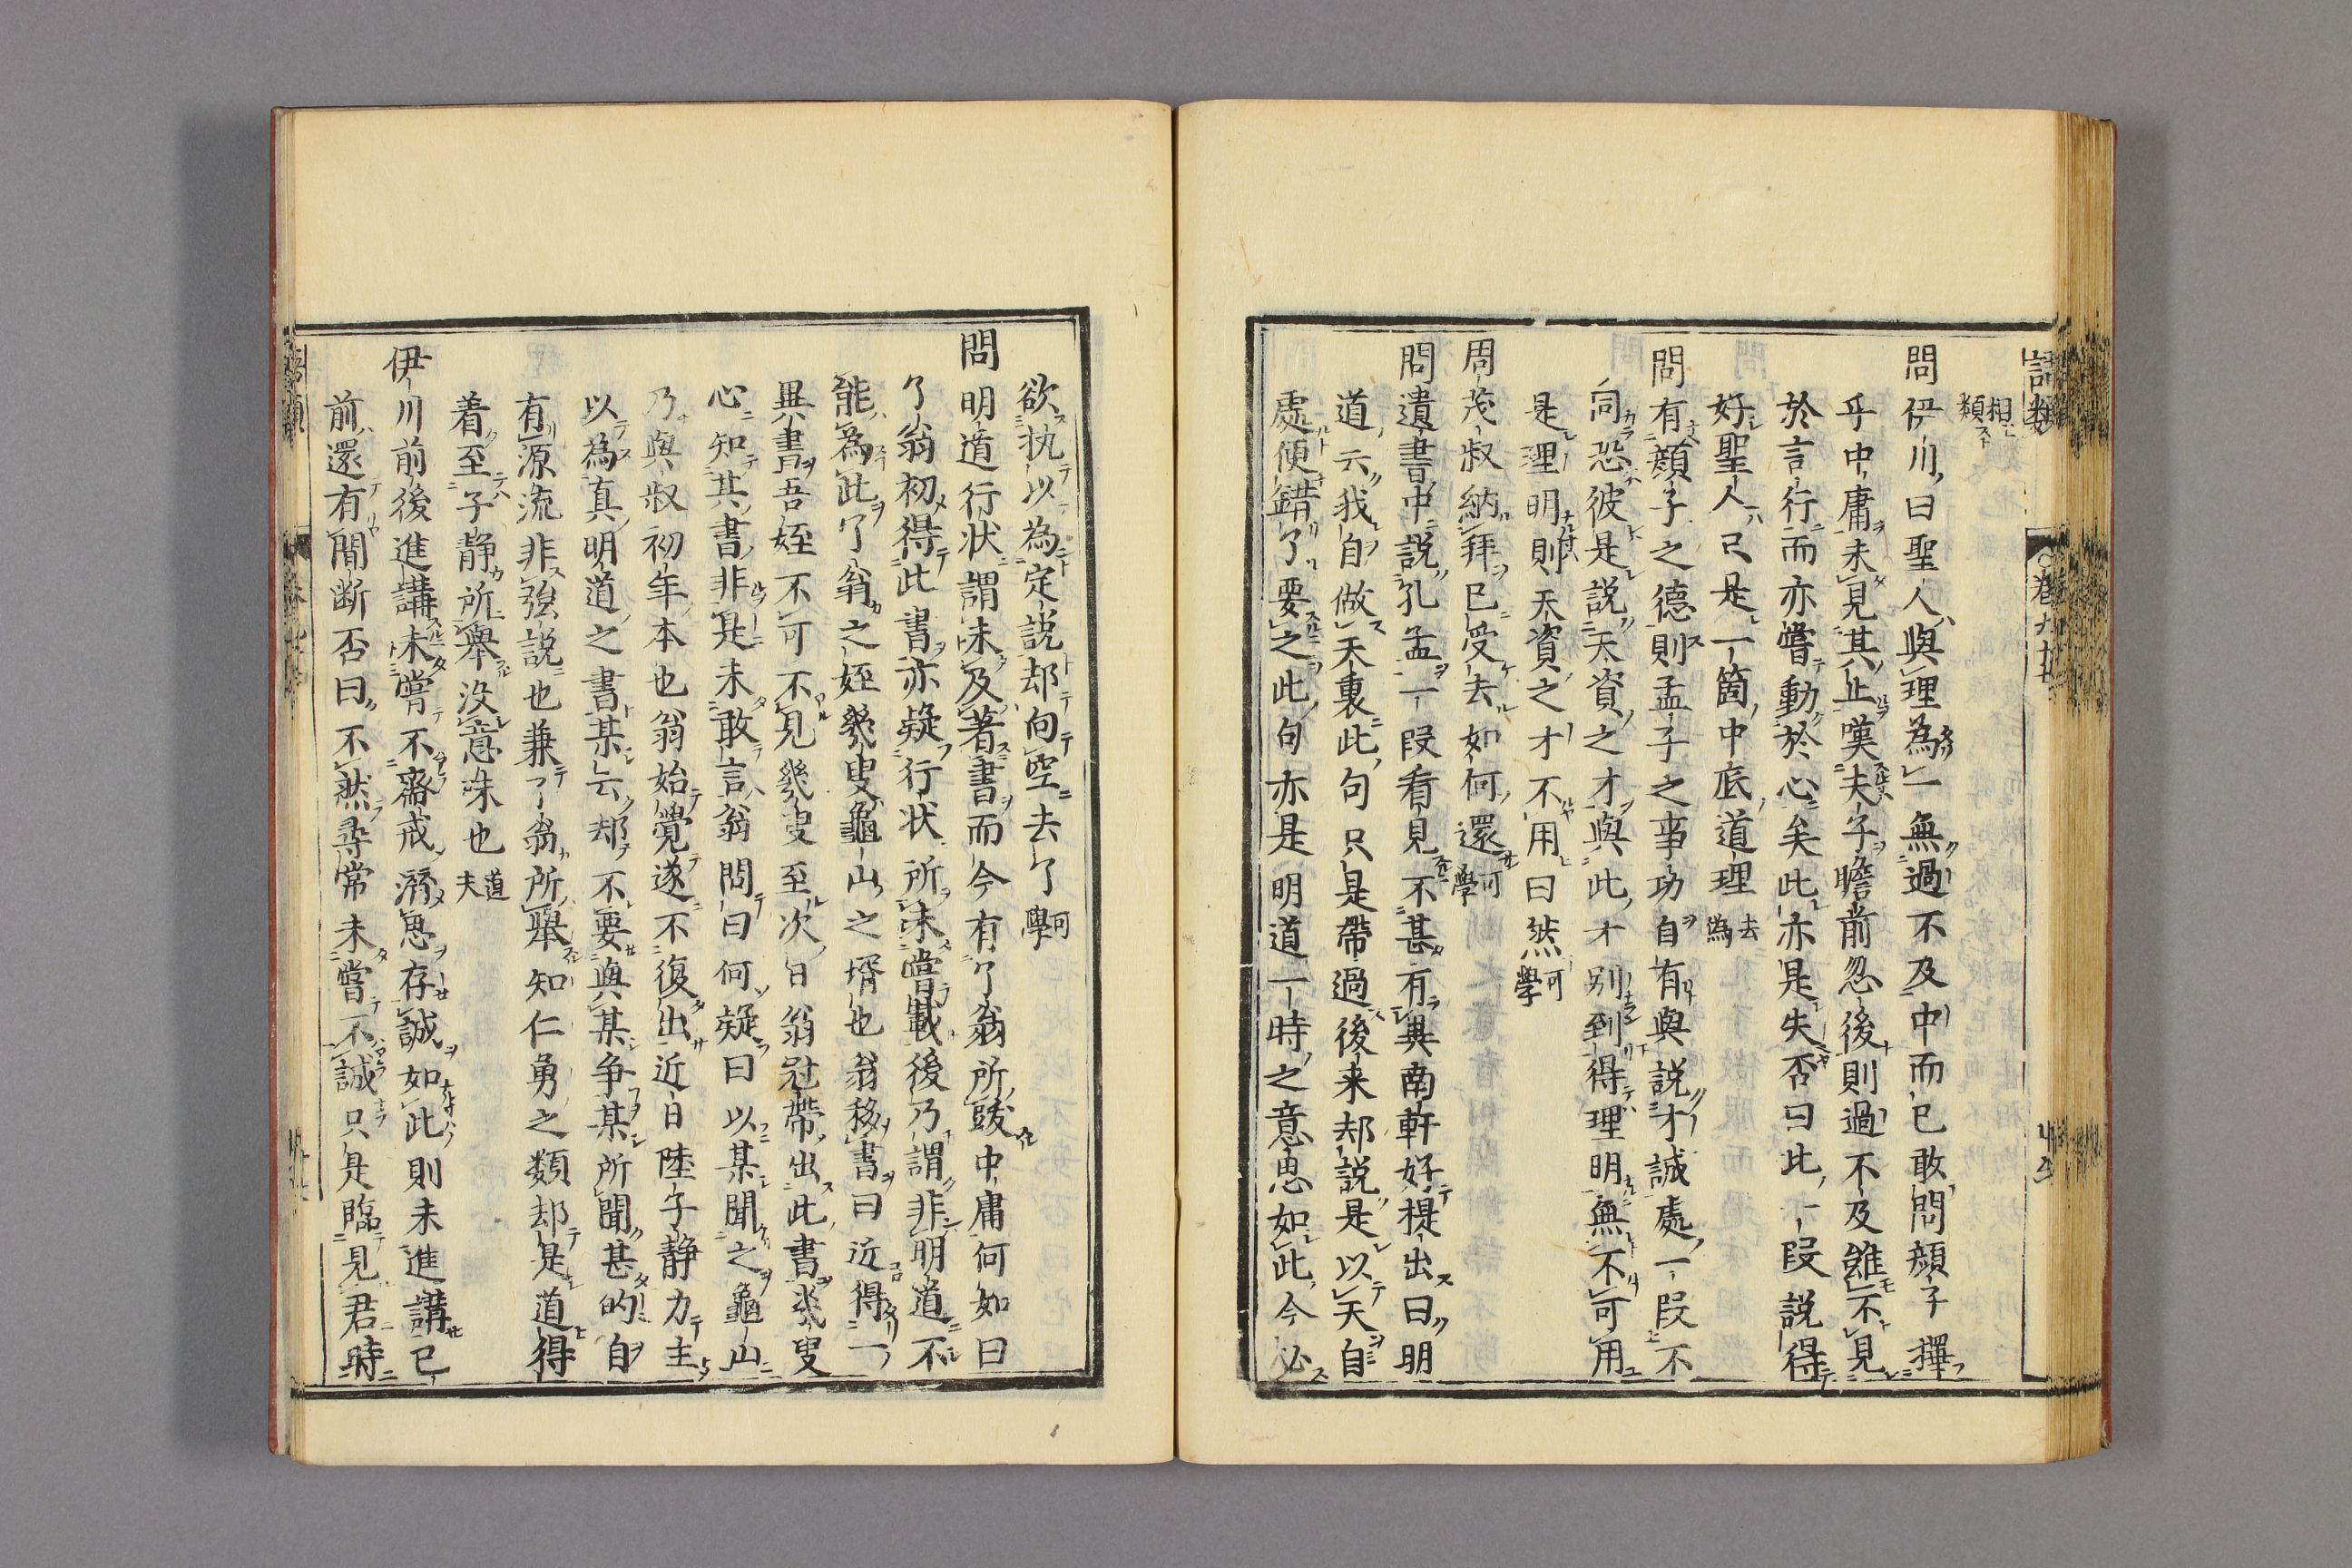 語類
○巻九十七
相類
問伊川曰聖人與理為一無過不及中而已敢問顔子擇
乎中庸未見其止嘆夫子瞻前忽後則過不及雖不見
於言行而亦嘗動於心矣此亦是失否曰此一段説得
好聖人只是一箇中底道理 去偽
問有顔子之德則孟子之事功自有與説才誠處一段不
同恐彼是説天資之才與此才別到得理明無不可用
是理明則天資之才不用曰然 可學
周茂叔納拜已受去如何還 可學
問遺書中説孔孟一段看見不甚有異南軒好提出曰明
道云我自做天裏此句只是帶過後来却説是以天自
處便錯了要之此句亦是明道一時之意思如此今必
欲执以為定説却向空去了 可學
問明道行状謂未及著書而今有了翁所跋中庸何如曰
了翁初得此書亦疑行状所未嘗載後乃謂非明道不
能為此了翁之姪幾叟龜山之壻也翁移書曰近得一
異書吾姪不可不見幾叟至次日翁冠帶出此書幾叟
心知其書非是未敢言翁問曰何疑曰以某聞之龜山
乃與叔初年本也翁始覺遂不復出近日陸子静力主
以為真明道之書某云却不要與某争某所聞甚的自
有源流非強説也兼了翁所舉知仁勇之類却是道得
着至子静所舉没意味也 道夫
伊川前後進講未嘗不齋戒潛思存誠如此則未進講已
前還有間断否曰不然尋常未嘗不誠只是臨見君時